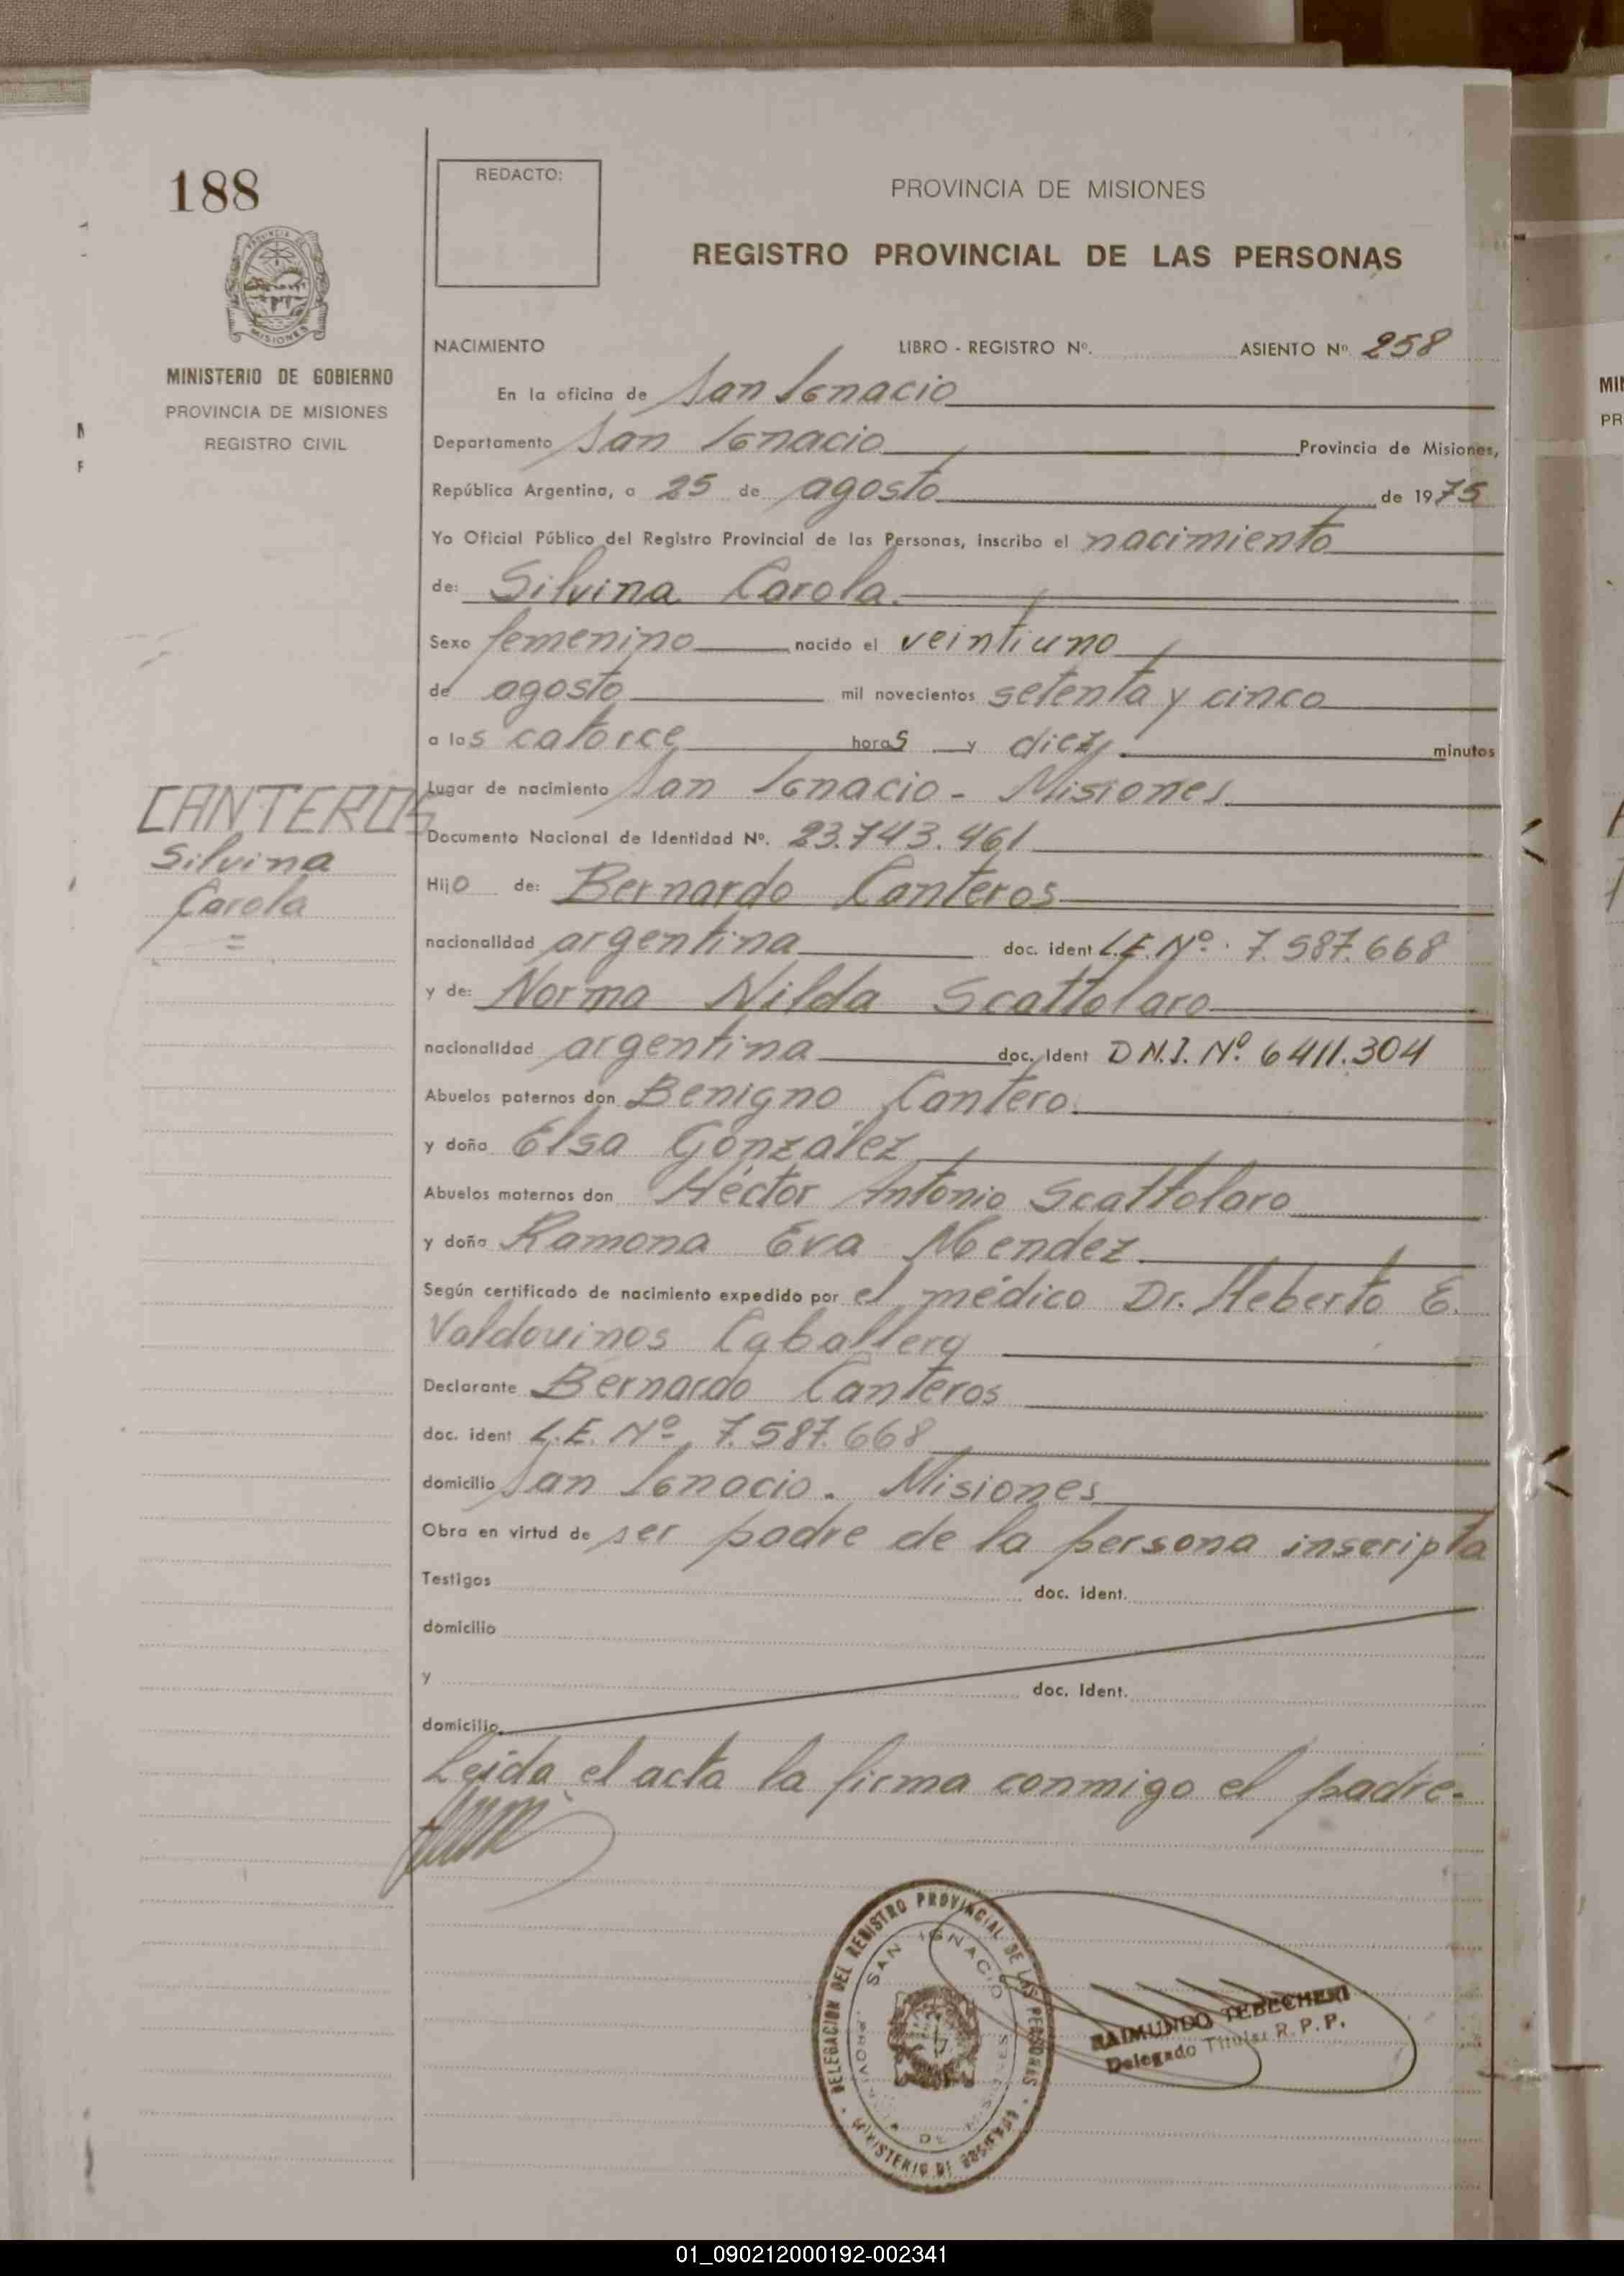 188
REDACTO:
PROVINCIA DE MISIONES
REGISTRO PROVINCIAL DE LAS PERSONAS
PROVINCIA DE
MISIONES
MINISTERIO DE GOBIERNO
PROVINCIA DE MISIONES
REGISTRO CIVIL
NACIMIENTO LIBRO - REGISTRO Nº. ASIENTO Nº. 258
En la oficina de San Ignacio
Departamento San Ignacio Provincia de Misiones,
República Argentina, a 25 de agosto de 1975
Yo Oficial Público del Registro Provincial de las Personas, inscribo el nacimiento
de: Silvina Carola.
Sexo femenino nacido el veintiuno
de agosto mil novecientos setenta y cinco
a las catorce horas y diez minutos
Lugar de nacimiento San Ignacio - Misiones
CANTEROS
Silvina
Carola
=
Documento Nacional de Identidad Nº. 23.743.461
Hijo de: Bernardo Canteros
nacionalidad argentina doc. ident L.E. Nº. 7.587.668
y de: Norma Nilda Scattolaro
nacionalidad argentina doc. Ident D.N.I. Nº 6411.304
Abuelos paternos don Benigno Cantero.
y doña Elsa González
Abuelos maternos don Héctor Antonio Scattolaro
y doña Ramona Eva Mendez
Según certificado de nacimiento expedido por el médico Dr. Heberto E.
Valdovinos Caballero
Declarante Bernardo Canteros
doc. ident L.E. Nº 7.587.668
domicilio San Ignacio. Misiones
Obra en virtud de ser padre de la persona inscripta
Testigos doc. ident.
domicilio
y doc. Ident.
domicilio
Leída el acta la firma conmigo el padre.
DELEGACION DEL REGISTRO PROVINCIAL DE LAS PERSONAS
SAN IGNACIO
PROVINCIA DE MISIONES
MINISTERIO DE GOBIERNO
RAIMUNDO TEBECHERI
Delegado Titular R. P. P.
MI
PR
01_090212000192-002341